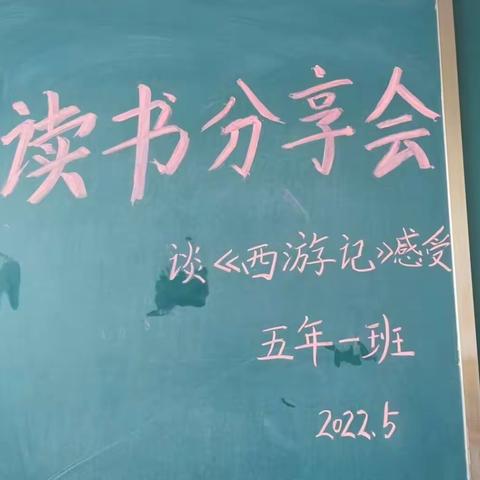 读书分享会
谈《西游记》感受
五年一班
2022.5